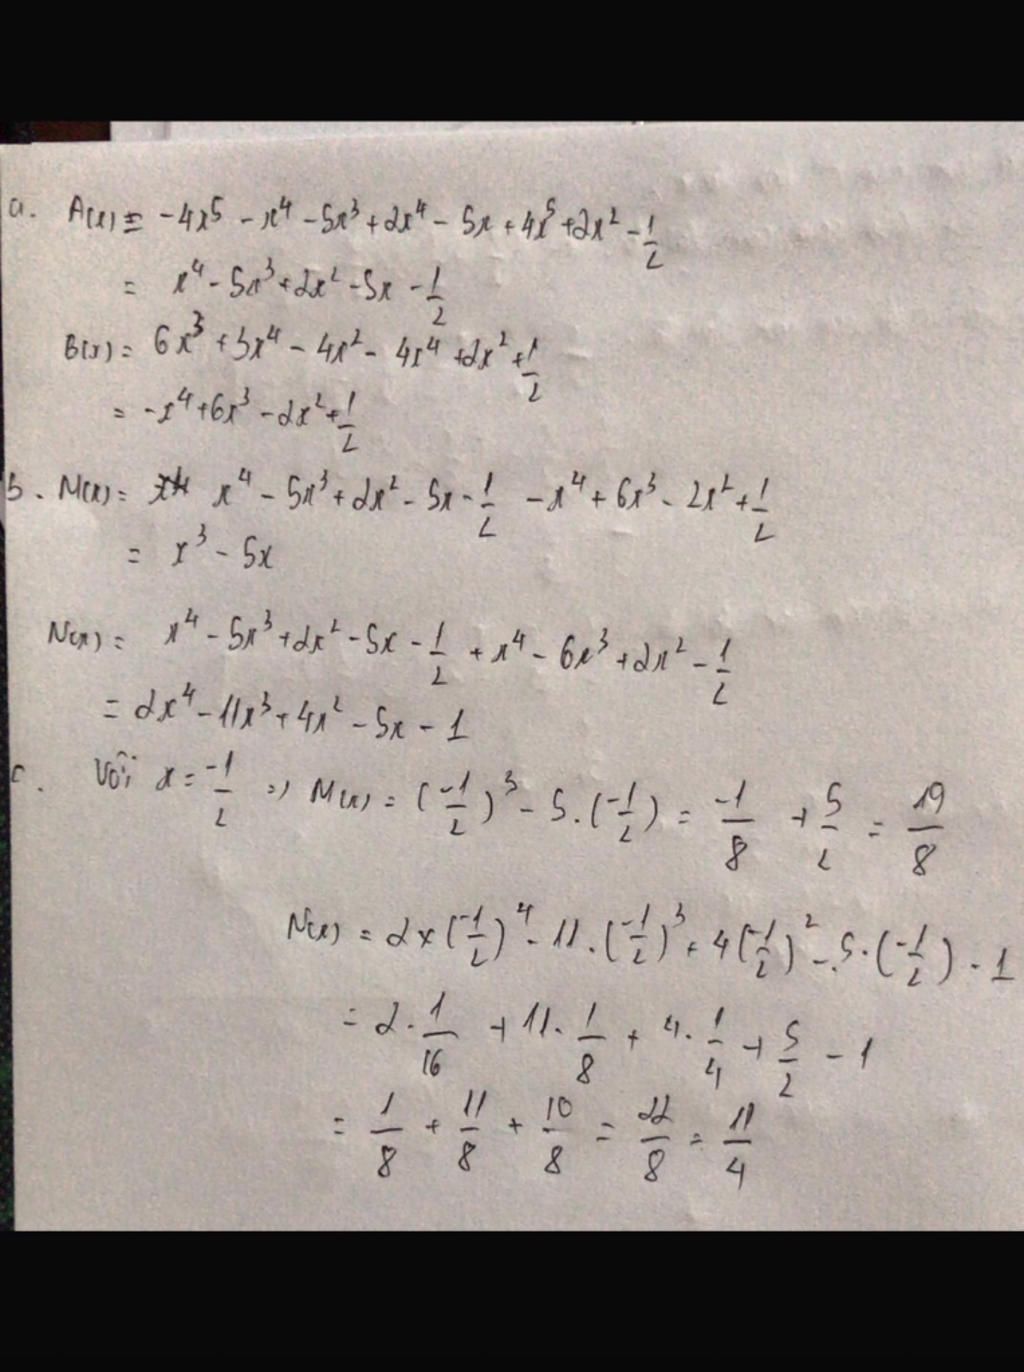 a. A(x) = -4x⁵ - x⁴ - 5x³ + 2x⁴ - 5x + 4x⁵ + 2x² - 1/2
= x⁴ - 5x³ + 2x² - 5x - 1/2
B(x) = 6x³ + 3x⁴ - 4x² - 4x⁴ + 2x² + 1/2
= -x⁴ + 6x³ - 2x² + 1/2
b. M(x) = x⁴ - 5x³ + 2x² - 5x - 1/2 - x⁴ + 6x³ - 2x² + 1/2
= x³ - 5x
N(x) = x⁴ - 5x³ + 2x² - 5x - 1/2 + x⁴ - 6x³ + 2x² - 1/2
= 2x⁴ - 11x³ + 4x² - 5x - 1
c. Với x = -1/2 => M(x) = (-1/2)³ - 5.(-1/2) = -1/8 + 5/2 = 19/8
N(x) = 2x(-1/2)⁴ - 11.(-1/2)³ + 4(-1/2)² - 5.(-1/2) - 1
= 2.1/16 + 11.1/8 + 4.1/4 + 5/2 - 1
= 1/8 + 11/8 + 10/8 = 22/8 = 11/4